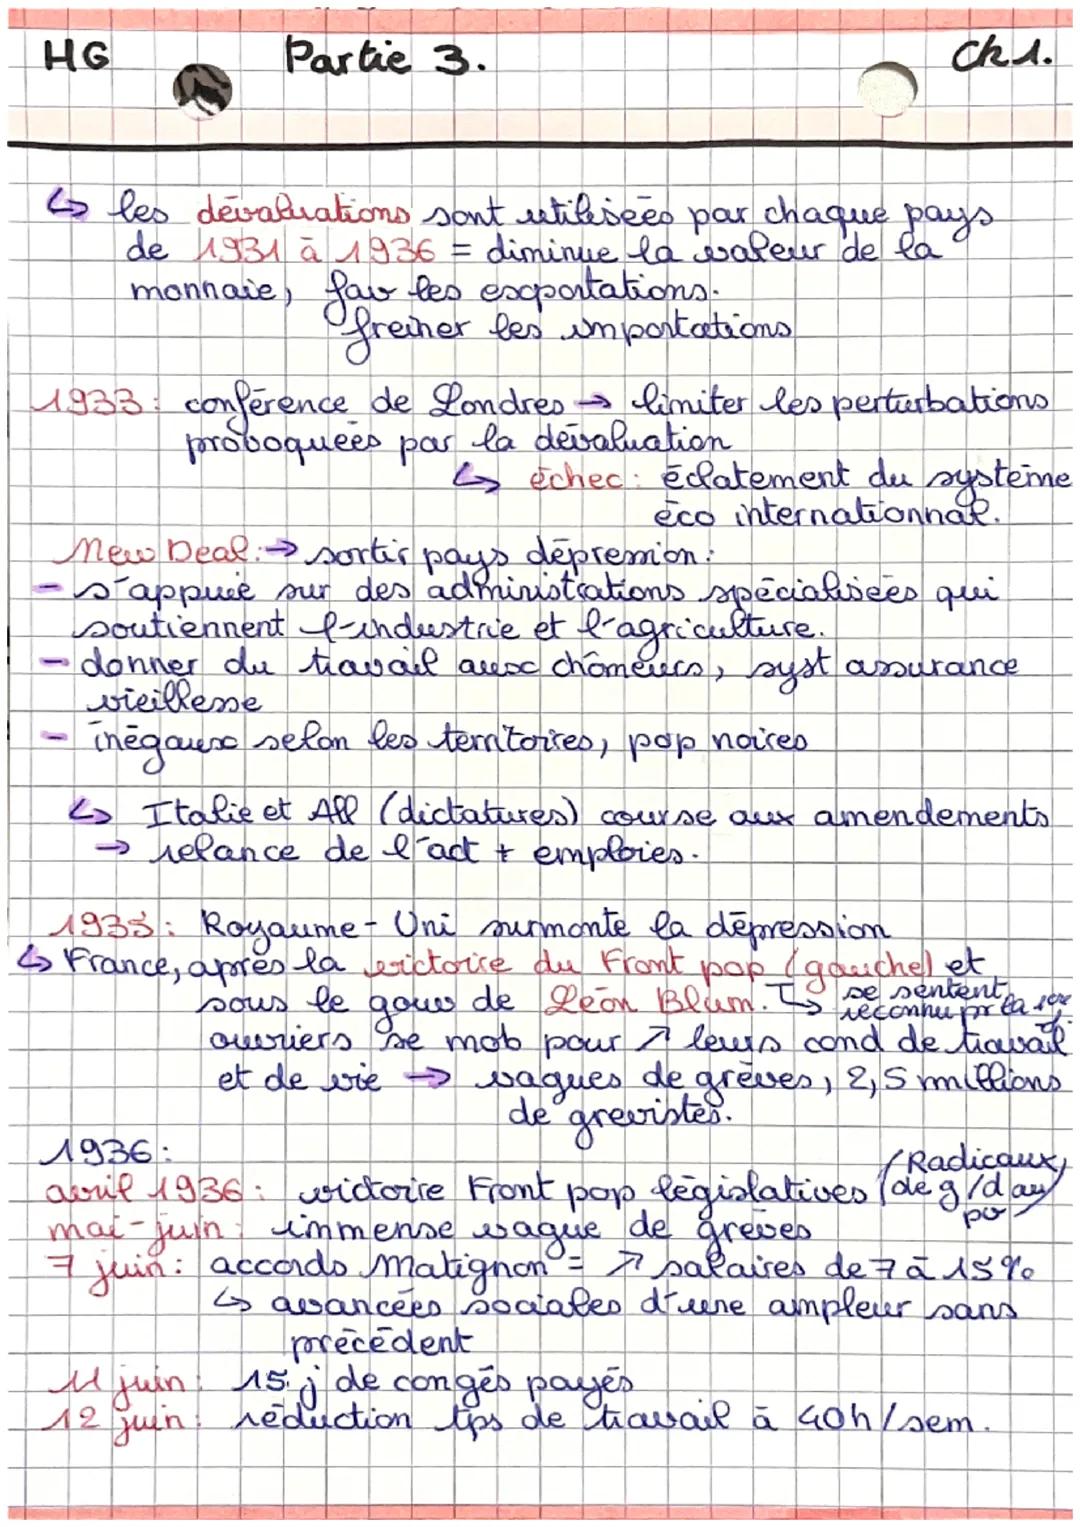 HG Partie 3. Ch 1.
↳ les dévaluations sont utilisées par chaque pays
de 1931 à 1936 = diminue la valeur de la
monnaie, fav les exportations.
freiner les importations
1933 : conférence de Londres → limiter les perturbations
proboquées par la dévaluation
↳ échec : éclatement du système
éco internationnal.
New Deal : → sortir pays dépression :
- s'appuie sur des administrations spécialisées qui
soutiennent l'industrie et l'agriculture.
- donner du travail aux chômeurs, syst assurance
vieillesse
- inégaux selon les territoires, pop noires
↳ Italie et All (dictatures) course aux amendements
→ relance de l'act + emploies.
1935 : Royaume-Uni surmonte la dépression
↳ France, après la victoire du Front pop (gauche) et
sous le gouv de Léon Blum. ↳ se sentent
reconnu pr la 1ère
ouvriers se mob pour ↗ leurs cond de travail
et de vie → vagues de grèves, 2,5 millions
de grevistes.
1936 :
avril 1936 : victoire Front pop législatives (Radicaux,
de g/d au
po)
mai-juin : immense vague de grèves
7 juin : accords Matignon = ↗ salaires de 7 à 15%
↳ avancées sociales d'une ampleur sans
précédent
11 juin : 15 j de congés payés
12 juin : réduction tps de travail à 40h/sem.